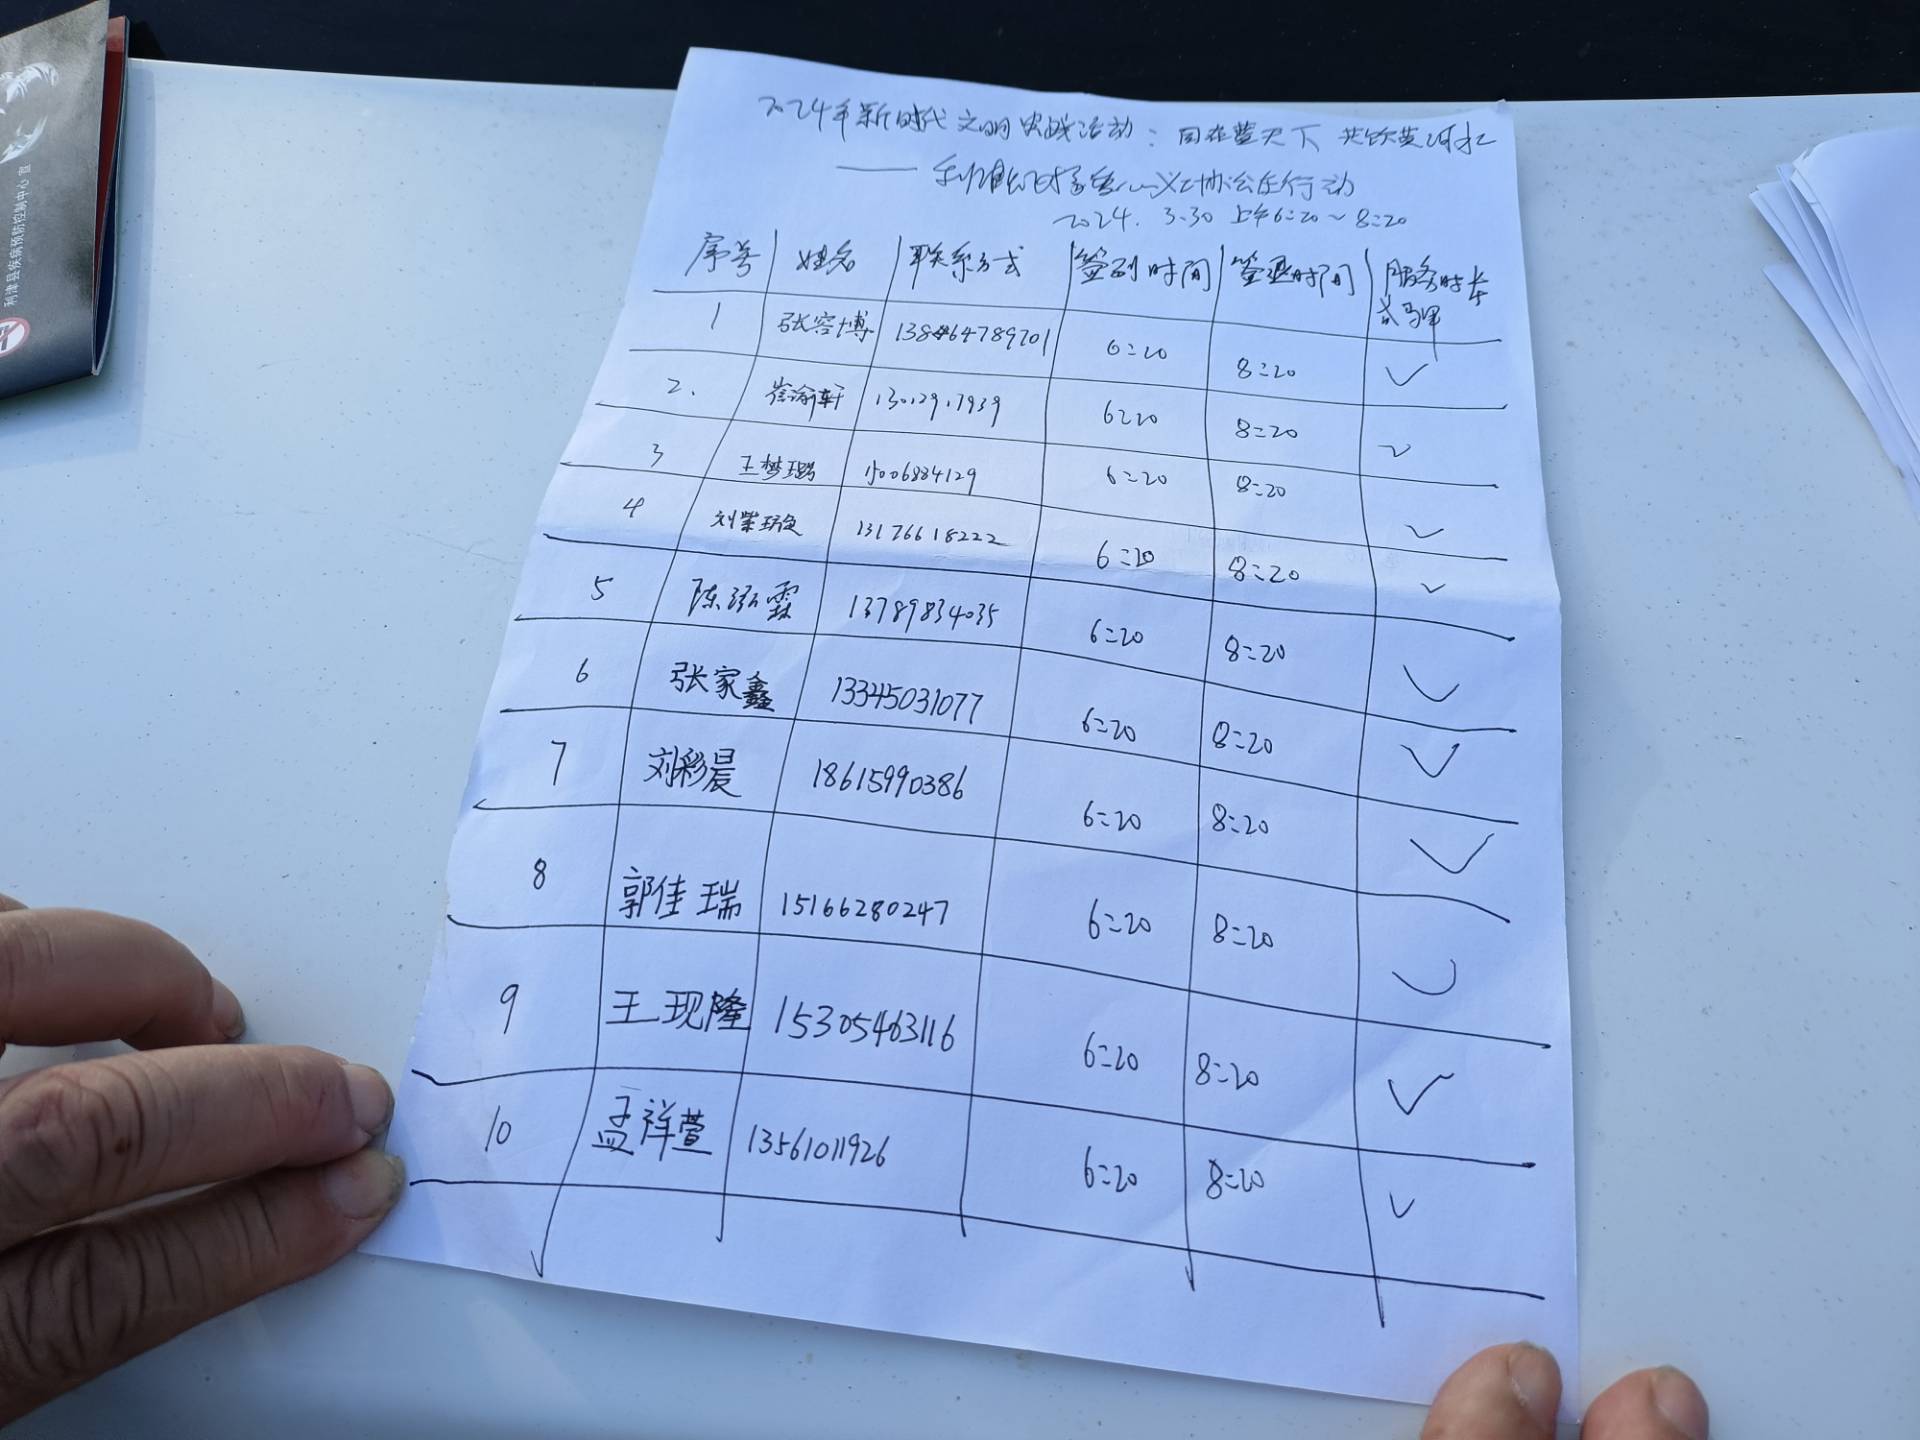 2024年新时代文明实践活动：同在蓝天下 共饮黄河水
义工协会在行动
2024.3.30 上午6:20～8:20
序号 姓名 联系方式 签到时间 签退时间 服务时长
1 张容博 6:20 8:20 ✓
2. 崔渝轩 13012917939 6:20 8:20 ✓
3 王梦璐 15006884129 6:20 8:20 ✓
4 刘紫琼 13176618222 6:20 8:20 ✓
5 陈泓霖 13789834035 6:20 8:20 ✓
6 张家鑫 13345031077 6:20 8:20 ✓
7 刘彩晨 18615990386 6:20 8:20 ✓
8 郭佳瑞 15166280247 6:20 8:20 ✓
9 王现隆 15305463116 6:20 8:20 ✓
10 孟祥萱 13561011926 6:20 8:20 ✓
利津县疾病预防控制中心 宣